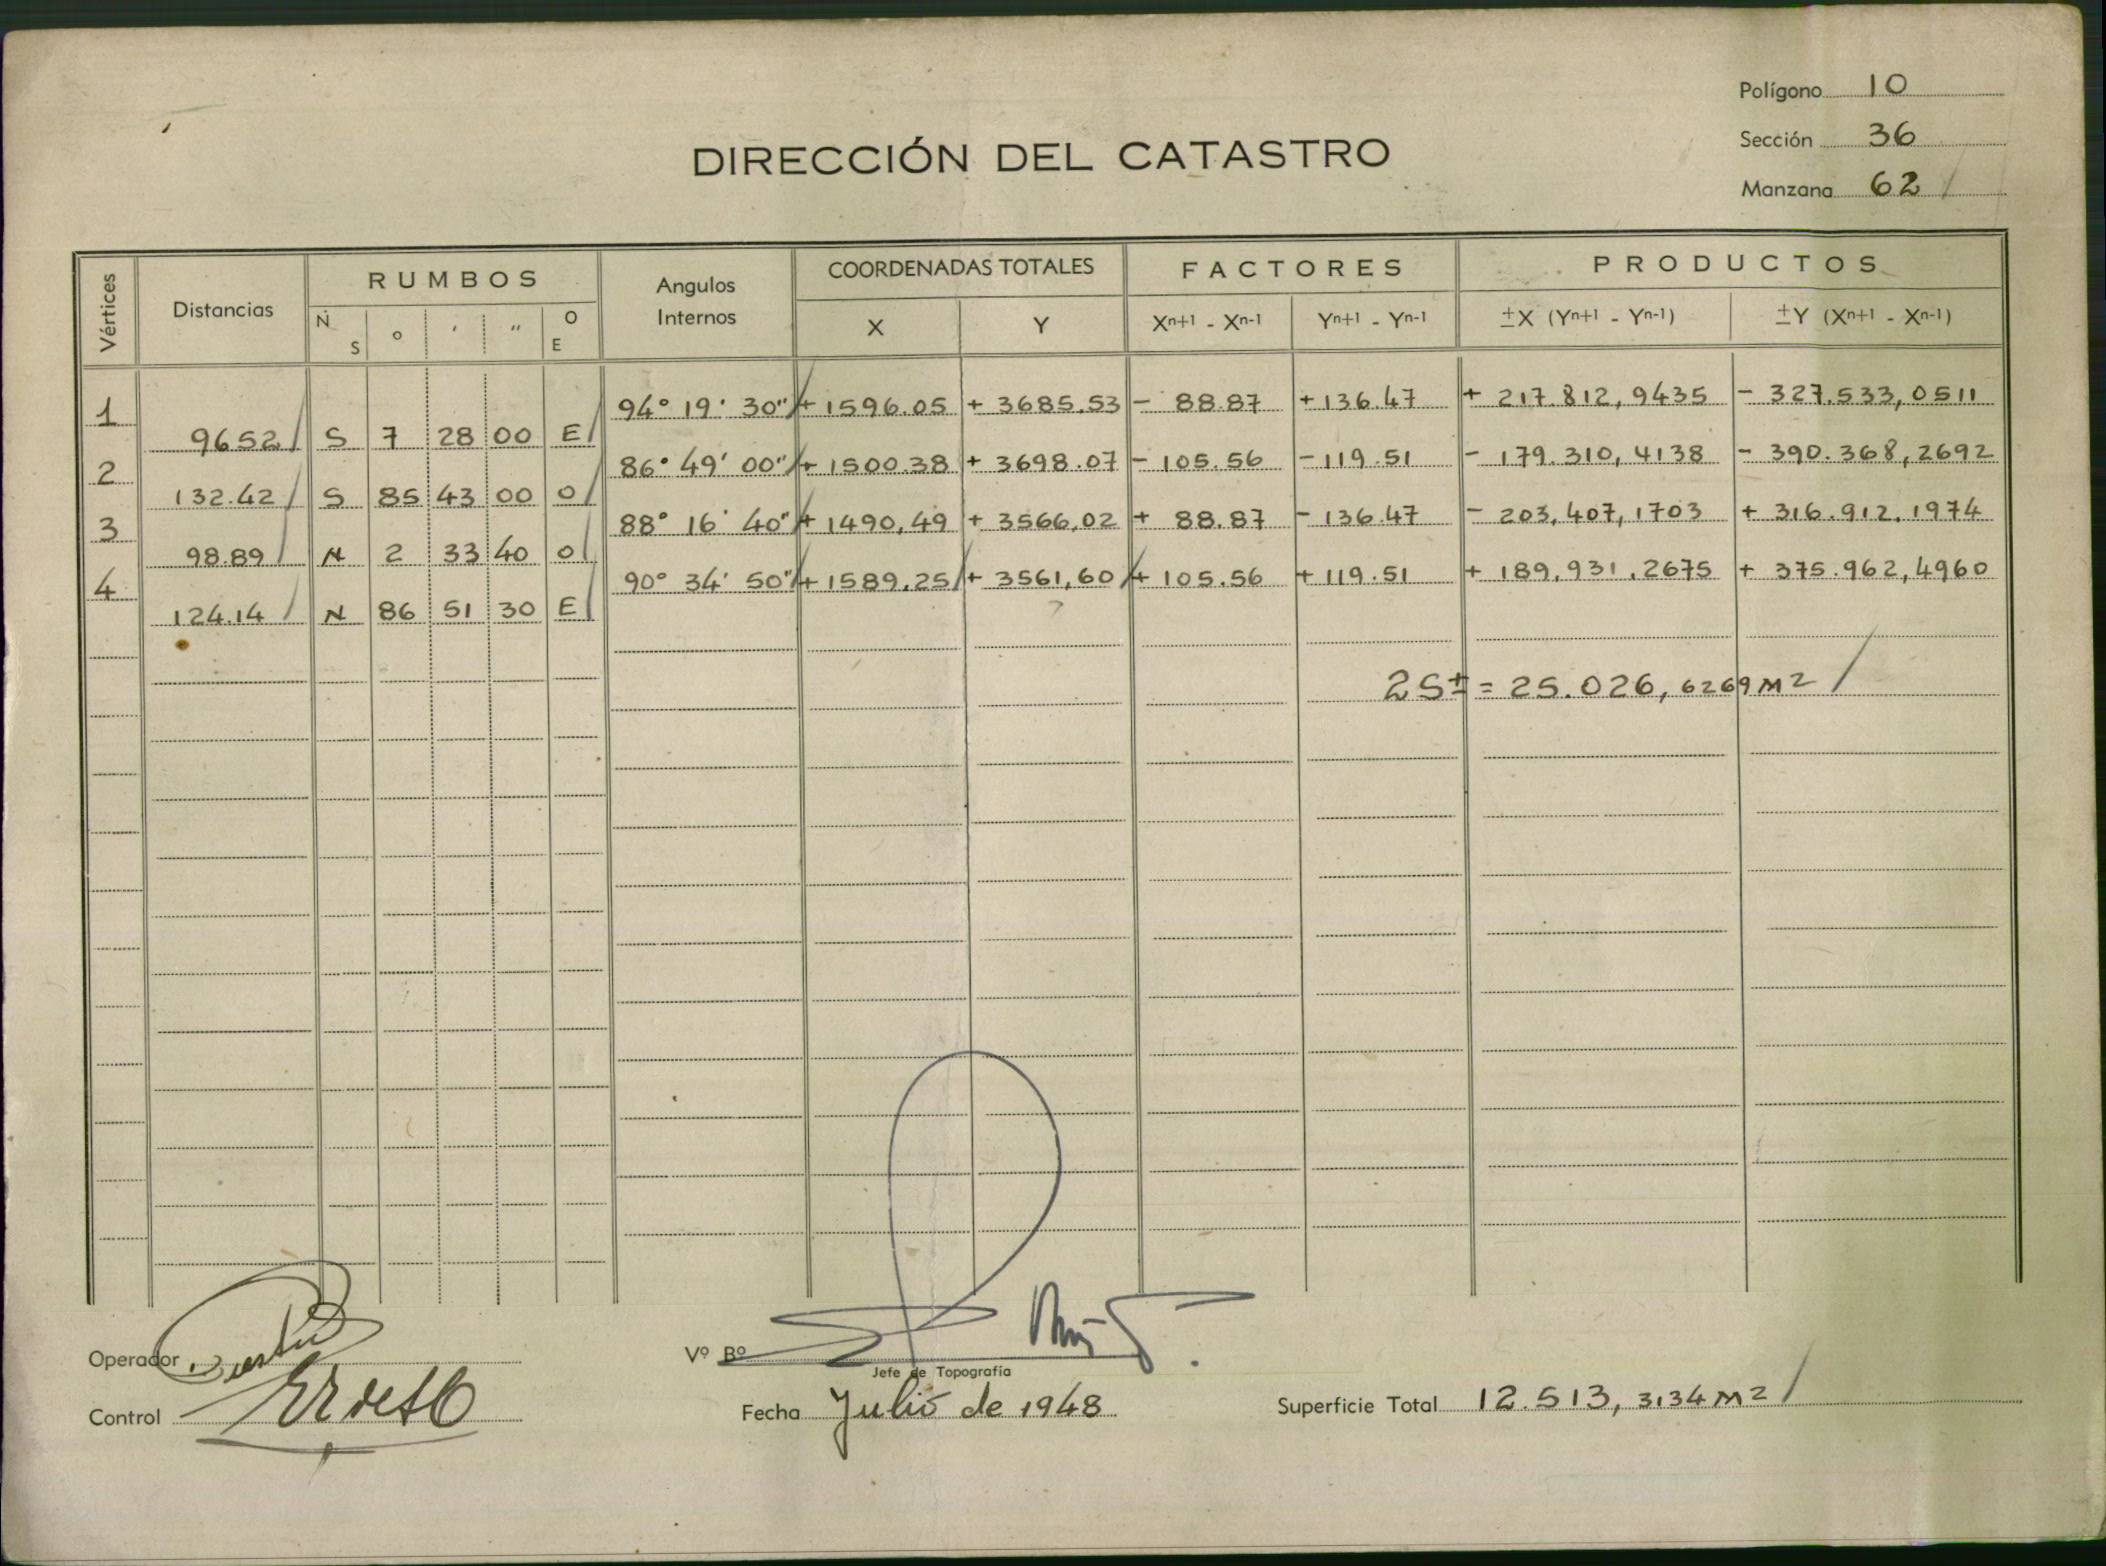 Polígono 10
Sección 36
Manzana 62
DIRECCIÓN DEL CATASTRO
Vértices Distancias RUMBOS Angulos Internos COORDENADAS TOTALES FACTORES PRODUCTOS
N S ° ' " O E X Y Xn+1 - Xn-1 Yn+1 - Yn-1 ±X (Yn+1 - Yn-1) ±Y (Xn+1 - Xn-1)
1 94° 19' 30" + 1596.05 + 3685.53 - 88.87 + 136.47 + 217.812,9435 - 327.533,0511
96 52 S 7 28 00 E
2 86° 49' 00" + 1500.38 + 3698.07 - 105.56 - 119.51 - 179.310,4138 - 390.368,2692
132.42 S 85 43 00 O
3 88° 16' 40" + 1490,49 + 3566,02 + 88.87 - 136.47 - 203,407,1703 + 316.912.1974
98.89 N 2 33 40 O
4 90° 34' 50" + 1589,25 + 3561,60 + 105.56 + 119.51 + 189,931,2675 + 375.962,4960
124.14 N 86 51 30 E
2S± = 25.026,6269 M2
Operador
Vº Bº
Jefe de Topografía
Control
Fecha Julio de 1948
Superficie Total 12.513,3134 M2